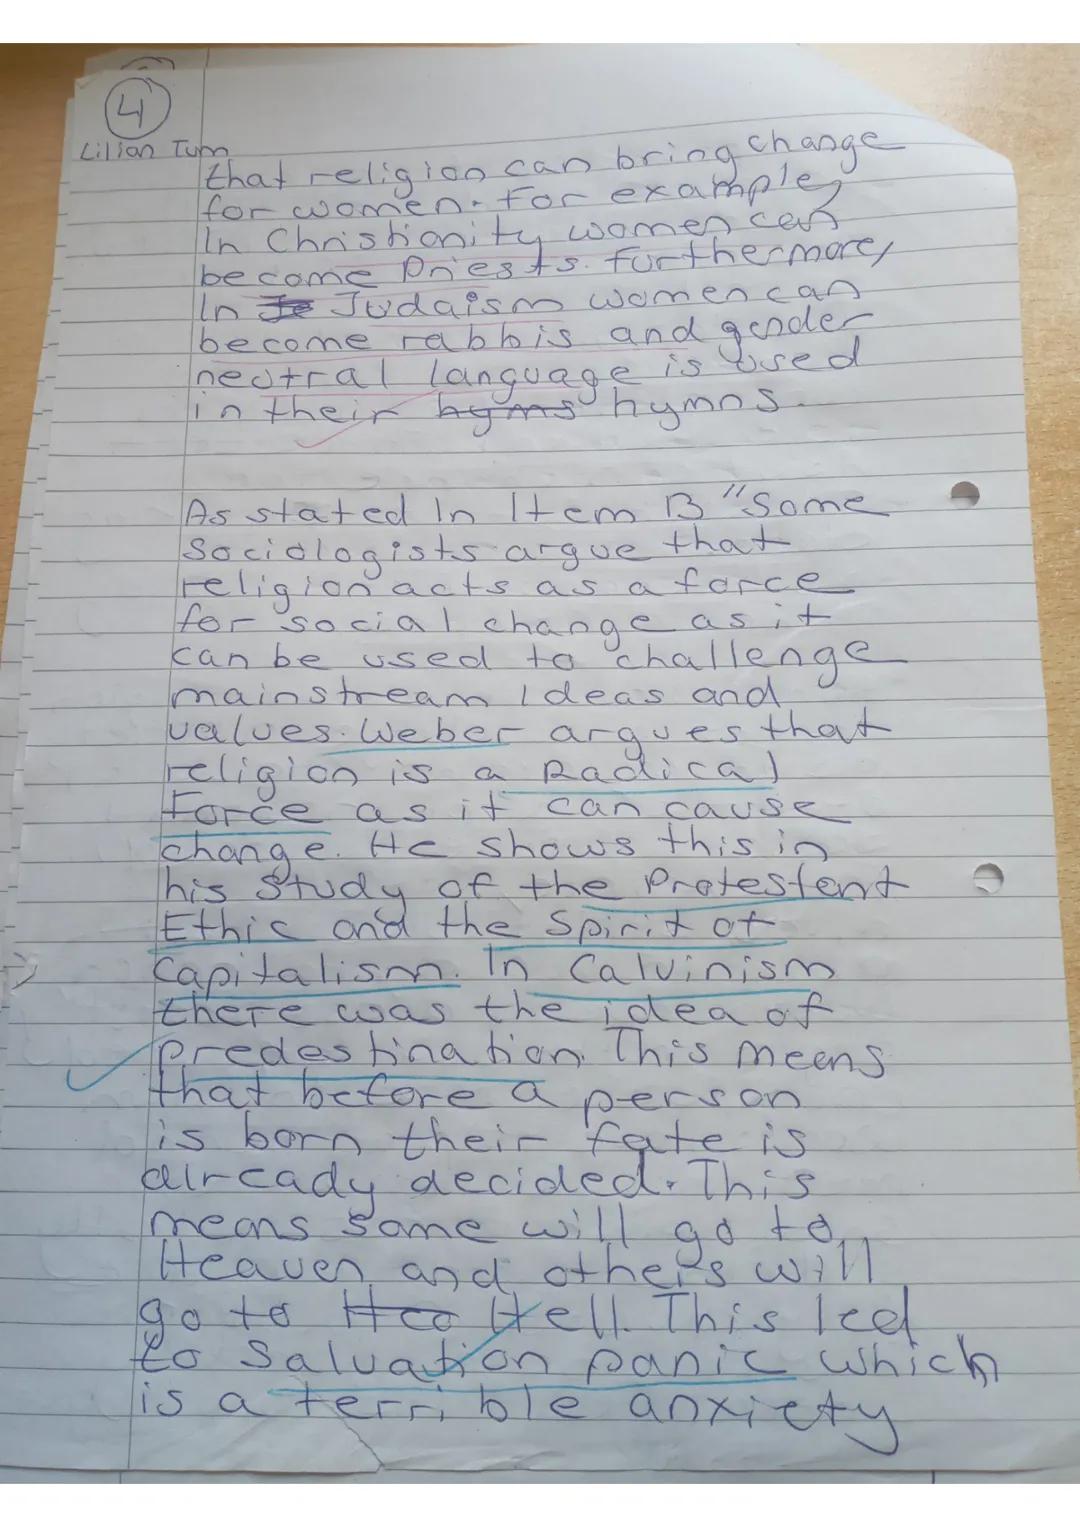 4
Lilian Tum
that religion can bring change
for women. For example,
In Christianity women can
become Priests. furthermore,
In Je Judaism women can
become rabbis and gender
neutral language is used
in their hyms hymns.
As stated In Item B "Some
Sociologists argue that
religion acts as a force
for social change as it
can be used to challenge
mainstream Ideas and
values. Weber argues that
religion is a Radical
Force as it can cause
change. He shows this in
his study of the Protestent
Ethic and the Spirit of
Capitalism. In Calvinism
there was the idea of
predestination. This means
that before a person
is born their fate is
already decided. This
means some will go to
Heaven and others will
go to Hea Hell. This led
to Salvation panic which
is a terrible anxiety